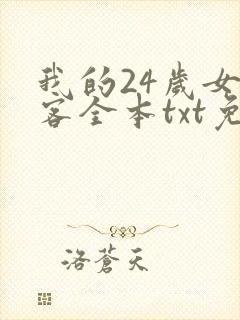 我的24歲女
客全本txt免
洛蒼天